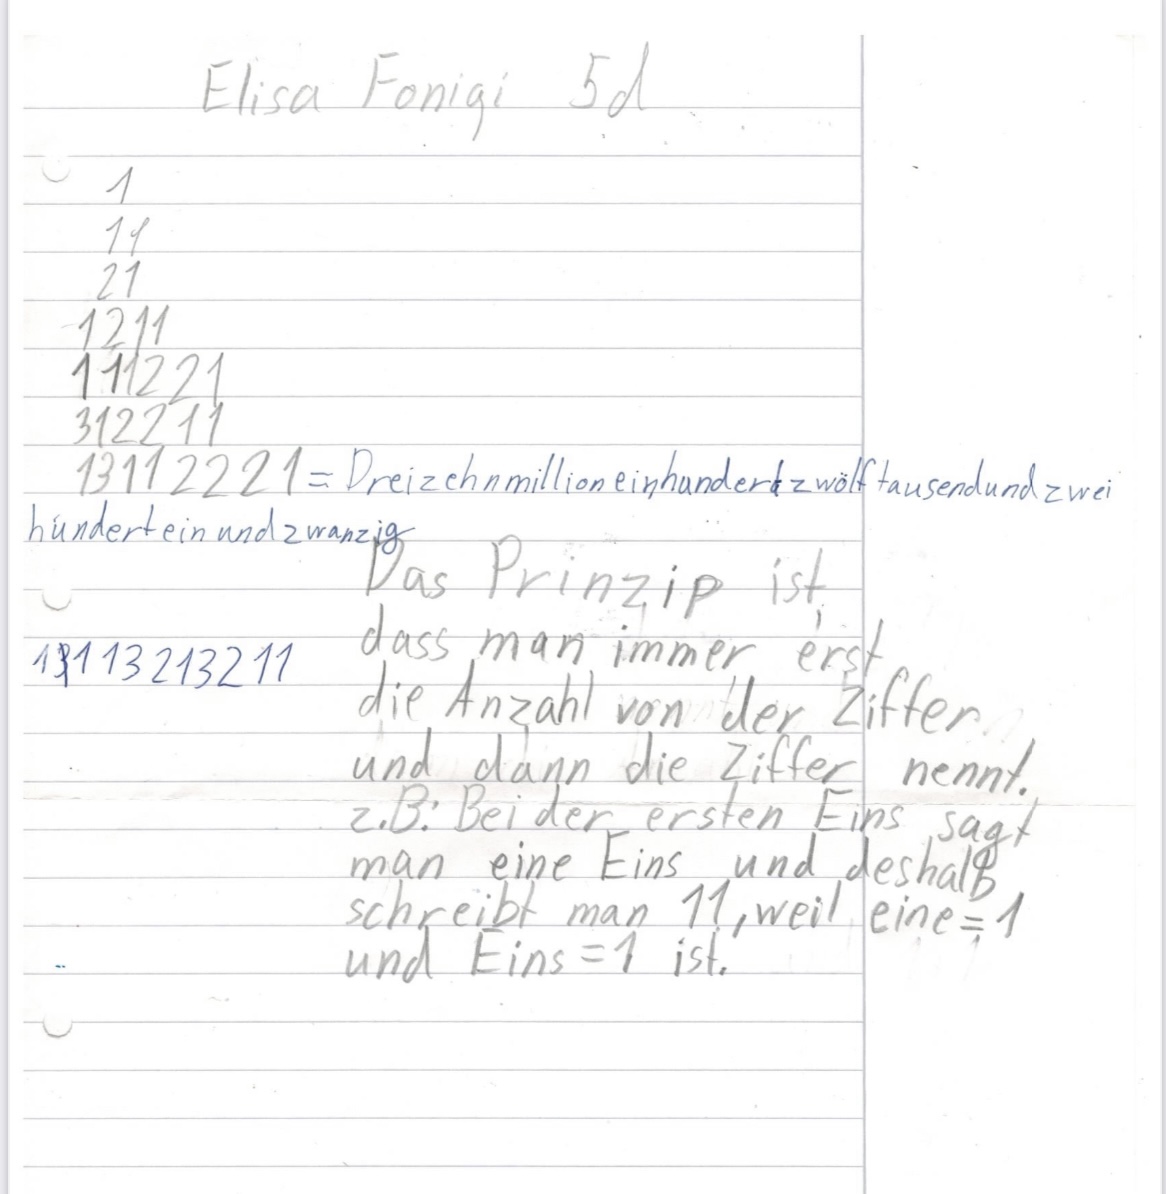 Elisa Fonigi 5d
1
11
21
1211
111221
312211
13112221 = Dreizehnmillioneinhundertzwölftausendundzwei
hunderteinundzwanzig
Das Prinzip ist,
dass man immer erst
1113213211
die Anzahl von der Ziffer
und dann die Ziffer nennt.
z.B: Bei der ersten Eins sagt
man eine Eins und deshalb
schreibt man 11, weil eine = 1
und Eins = 1 ist.